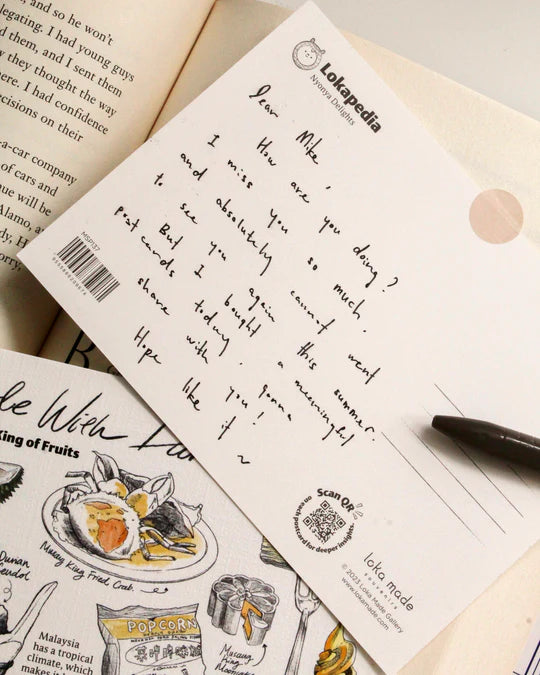 legating. I had young guys
d them, and I sent them
they thought the way
ere. I had confidence
ecisions on their
ra-car company
of cars and
nue will be
Alamo, a
dy, H
orry,
Lokapedia
Nyonya Delights
Dear Mike,
How are you doing?
I miss you so much.
and absolutely cannot went
to see you again this summer.
But I bought a meaningful
postcards today. gonna
share with you!
Hope like it ~
MSP137
Scan QR
on each postcard for deeper insights
loka made
© 2023 Loka Made Gallery
www.lokamade.com
With
King of Fruits
Musang King Fried Crab.
Durian
Cendol
POPCORN
Musang
King
Mooncake
Malaysia
has a tropical
climate, which
makes it